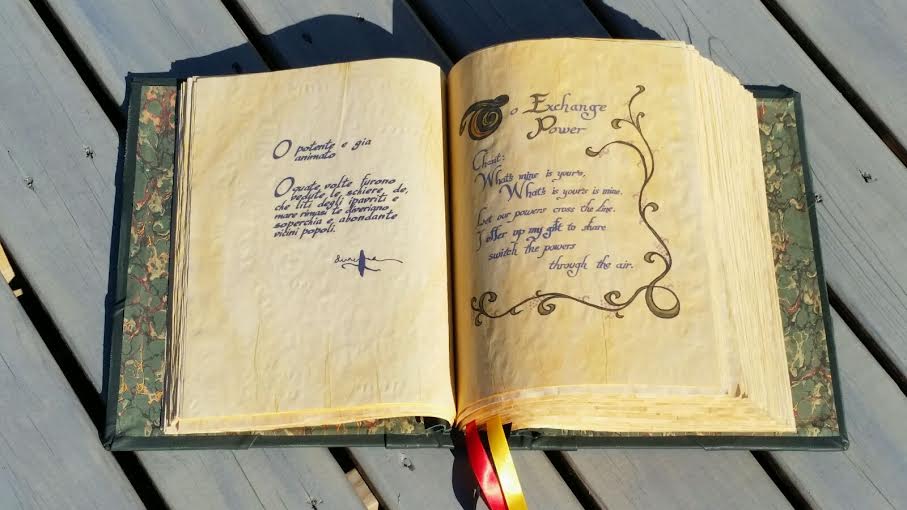 O potente e gia
animato
O quate volte furono
vedute le schiere, de,
che liti degli iparriti e
mare rimasi te diveriano,
soperchia e abondante
vicini popoli.
To Exchange
Power
Chant:
What's mine is yours,
What's is yours is mine.
Let our powers cross the line.
I offer up my gift to share
switch the powers
through the air.